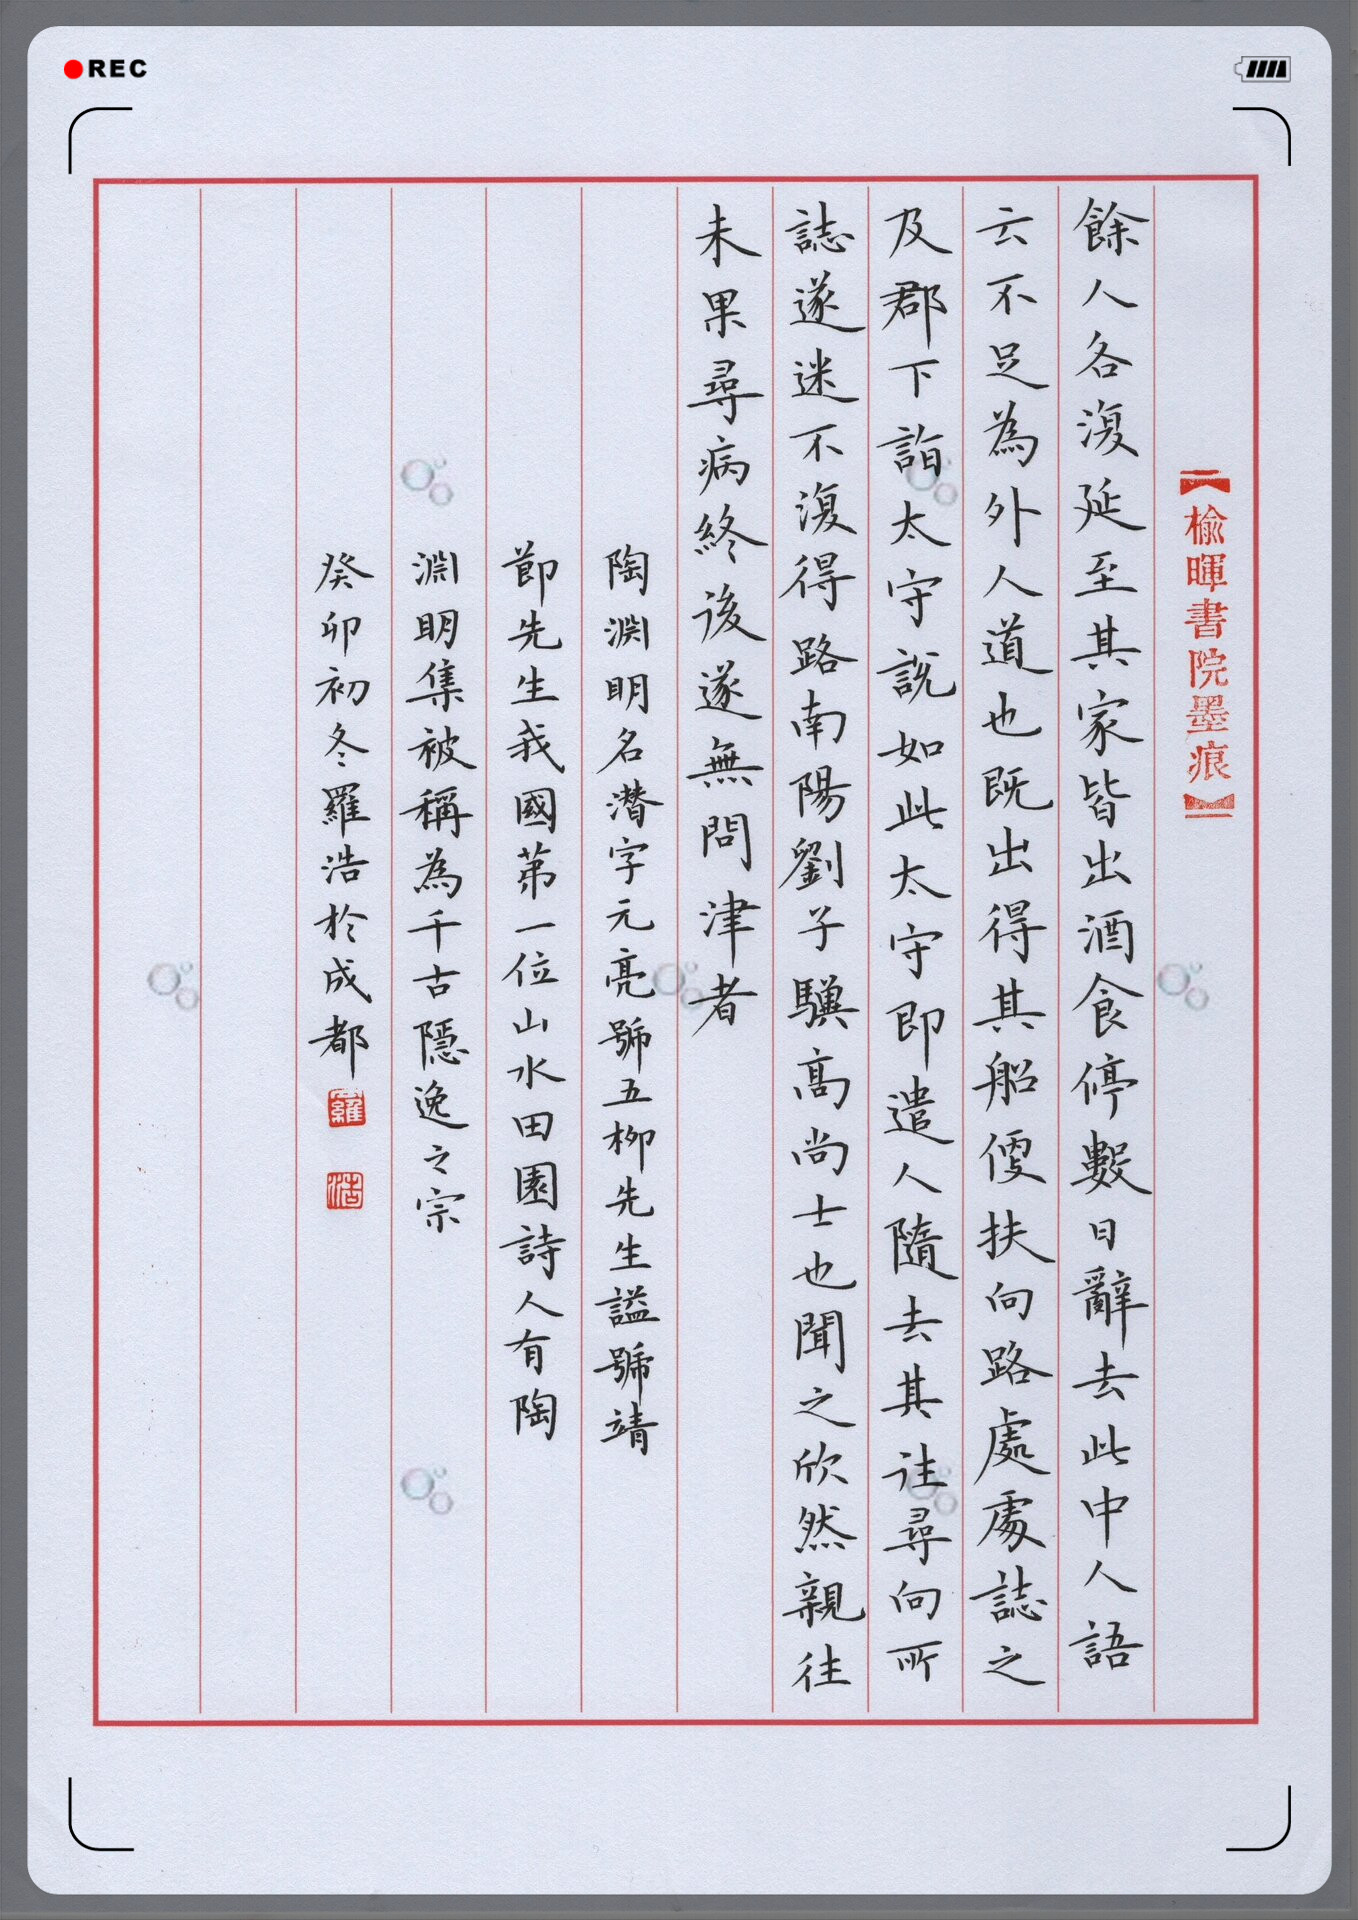 REC
【榆暉書院墨痕】
餘人各復延至其家皆出酒食停數日辭去此中人語
云不足為外人道也既出得其船便扶向路處處誌之
及郡下詣太守說如此太守即遣人隨去其往尋向所
誌遂迷不復得路南陽劉子驥高尚士也聞之欣然親往
未果尋病終後遂無問津者
陶淵明名潛字元亮號五柳先生謚號靖
節先生我國第一位山水田園詩人有陶
淵明集被稱為千古隱逸之宗
癸卯初冬羅浩於成都
羅
浩